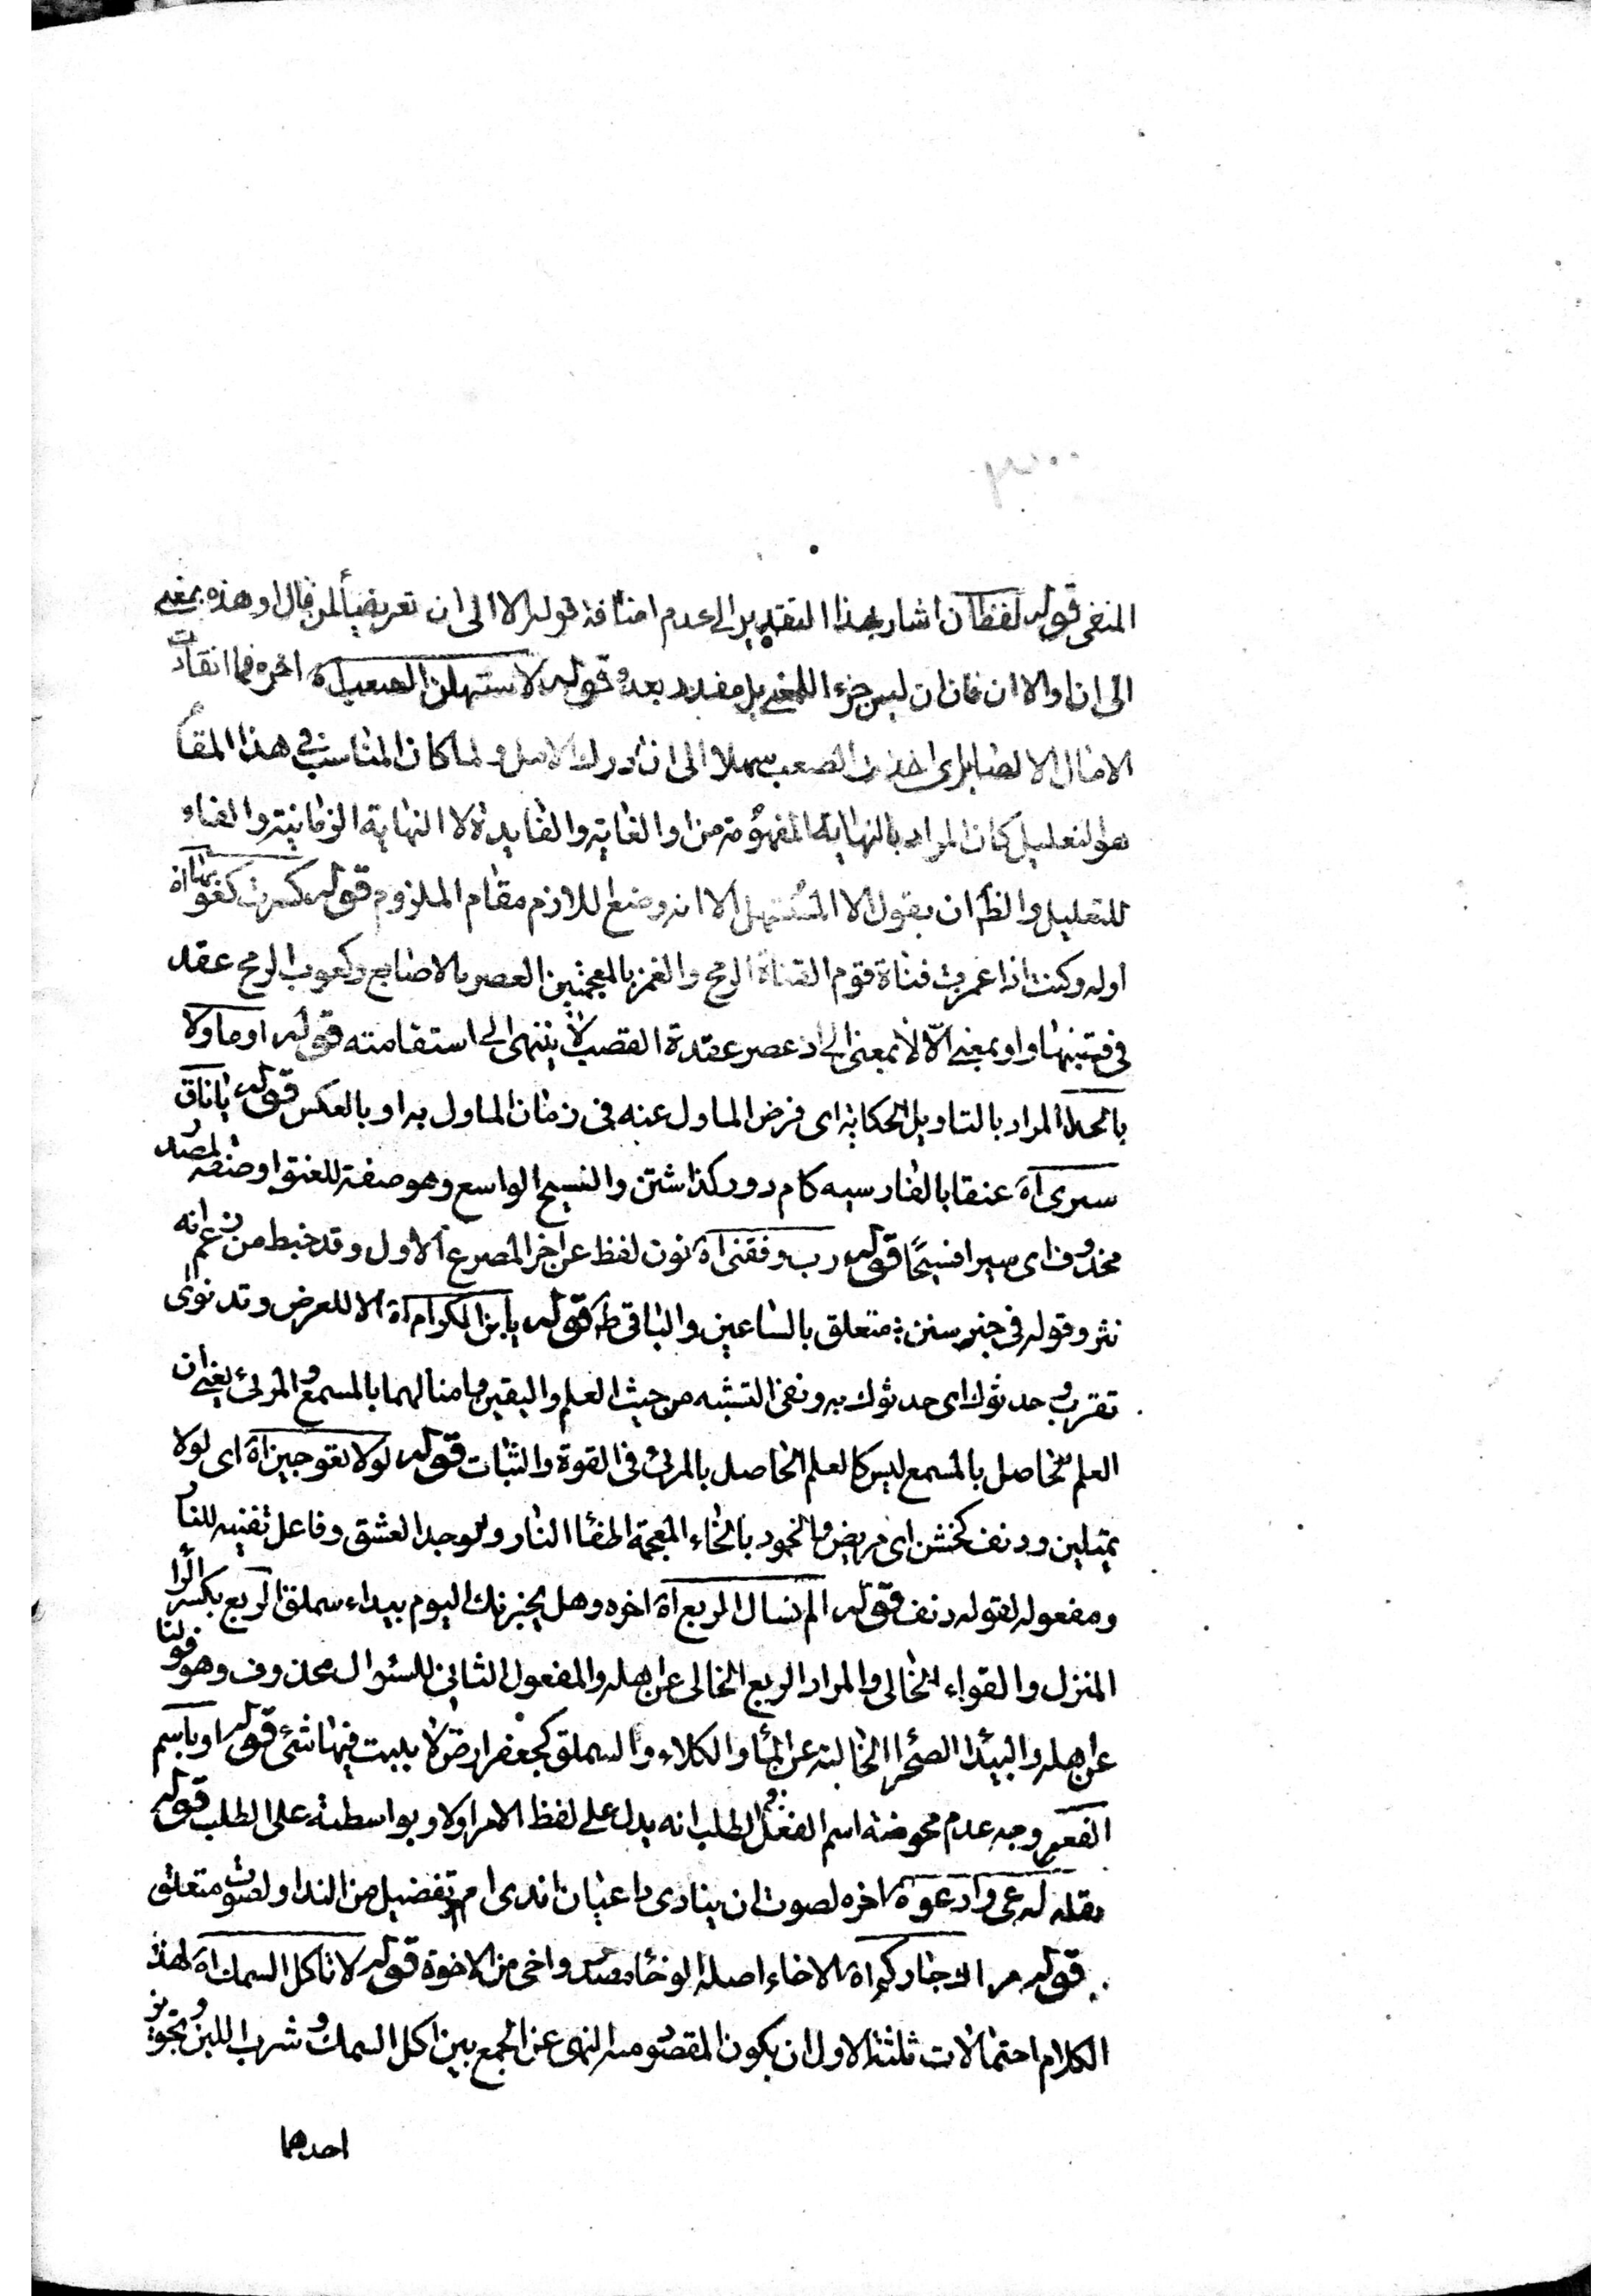 المنفى قوله لفظ ان اشار بهذا التقدير الى عدم اضافة قوله الا الى ان تعريضاً لمن قال او هذه بمعنى
الى ان او الا ان فان ان ليس جزء المعنى بل مقدر بعده قوله لاستهلن الصعب اه اخره فما انقادت
الامال الا لصابر اى اخذن الصعب سهلا الى ان ادرك الامل ولما كان المناسب فى هذا المقام
هو التعليل كان المراد بالنهاية المفهومة من او الغاية والفايدة لا النهاية الزمانية والفاء
للتعليل والظ ان يقول الا المستهل الا انه وضع اللازم مقام الملزوم قوله كسرت كعوبها اه
اوله وكنت اذا غمزت قناة قوم القناة الرمح والغمز بالمعجمتين العصر بالاصابع وكعوب الرمح عقد
فى قصبتها واو بمعنى الّا لا بمعنى الى اذ عصر عقدة القصب لا ينتهى الى استقامته قوله او ماولا
بالحال المراد بالتاويل الحكاية اى فرض الماول عنه فى زمان الماول به او بالعكس قوله ياناق
سيرى اه عنقا بالفارسيه كام دور كذاشتن والفسيح الواسع وهو صفة للعنق او صفة لمصدر
محذوف اى سيرا فسيحًا قوله رب وفقنى اه نون لفظ عن اخر المصرع الاول وقد خبط من زعم انه
نثر وقوله فى خير سنن متعلق بالساعين والباقى ظ قوله يابن الكرام اه الا للعرض وتدنو اى
تقرب وحدثوك اى حدثوك به ونفى التشبه من حيث العلم واليقين وامثالهما بالمسموع والمرئى يعنى ان
العلم الحاصل بالمسمع ليس كالعلم الحاصل بالمرئى فى القوة والثبات قوله لولا تعوجين اه اى لولا
تميلين ودنف كخشن اى مريض والخمود بالخاء المعجمة اطفاا النار والوجد العشق وفاعل تفنيه للنار
ومفعوله لقوله دنف قوله الم تسال الربع اه اخره وهل يخبرنك اليوم بيداء سملق الربع بكسر الرا
المنزل والقواء الخالى والمراد الربع الخالى عن اهله والمفعول الثانى للسئوال محذوف وهو قولنا
عن اهله والبيدا الصحرا الخالية عن الماء والكلاء والسملق كجعفر ارض لا ينبت فيها شئ قوله او باسم
الفعل وجه عدم محوضة اسم الفعل فى الطلب انه يدل على لفظ الامر اولا وبواسطته على الطلب قوله
فقلت ادعى وادعو اه اخره لصوت ان ينادى داعيان اندى اسم تفضيل من الندا ولصوت متعلق
قوله مر الاجاركم اه الاخاء اصله الوخا مصدر واخى من الاخوة قوله لا تاكل السمك اه لهذا
الكلام احتمالات ثلثة الاول ان يكون المقصود منه النهى عن الجمع بين اكل السمك وشرب اللبن وتجويز
احدهما